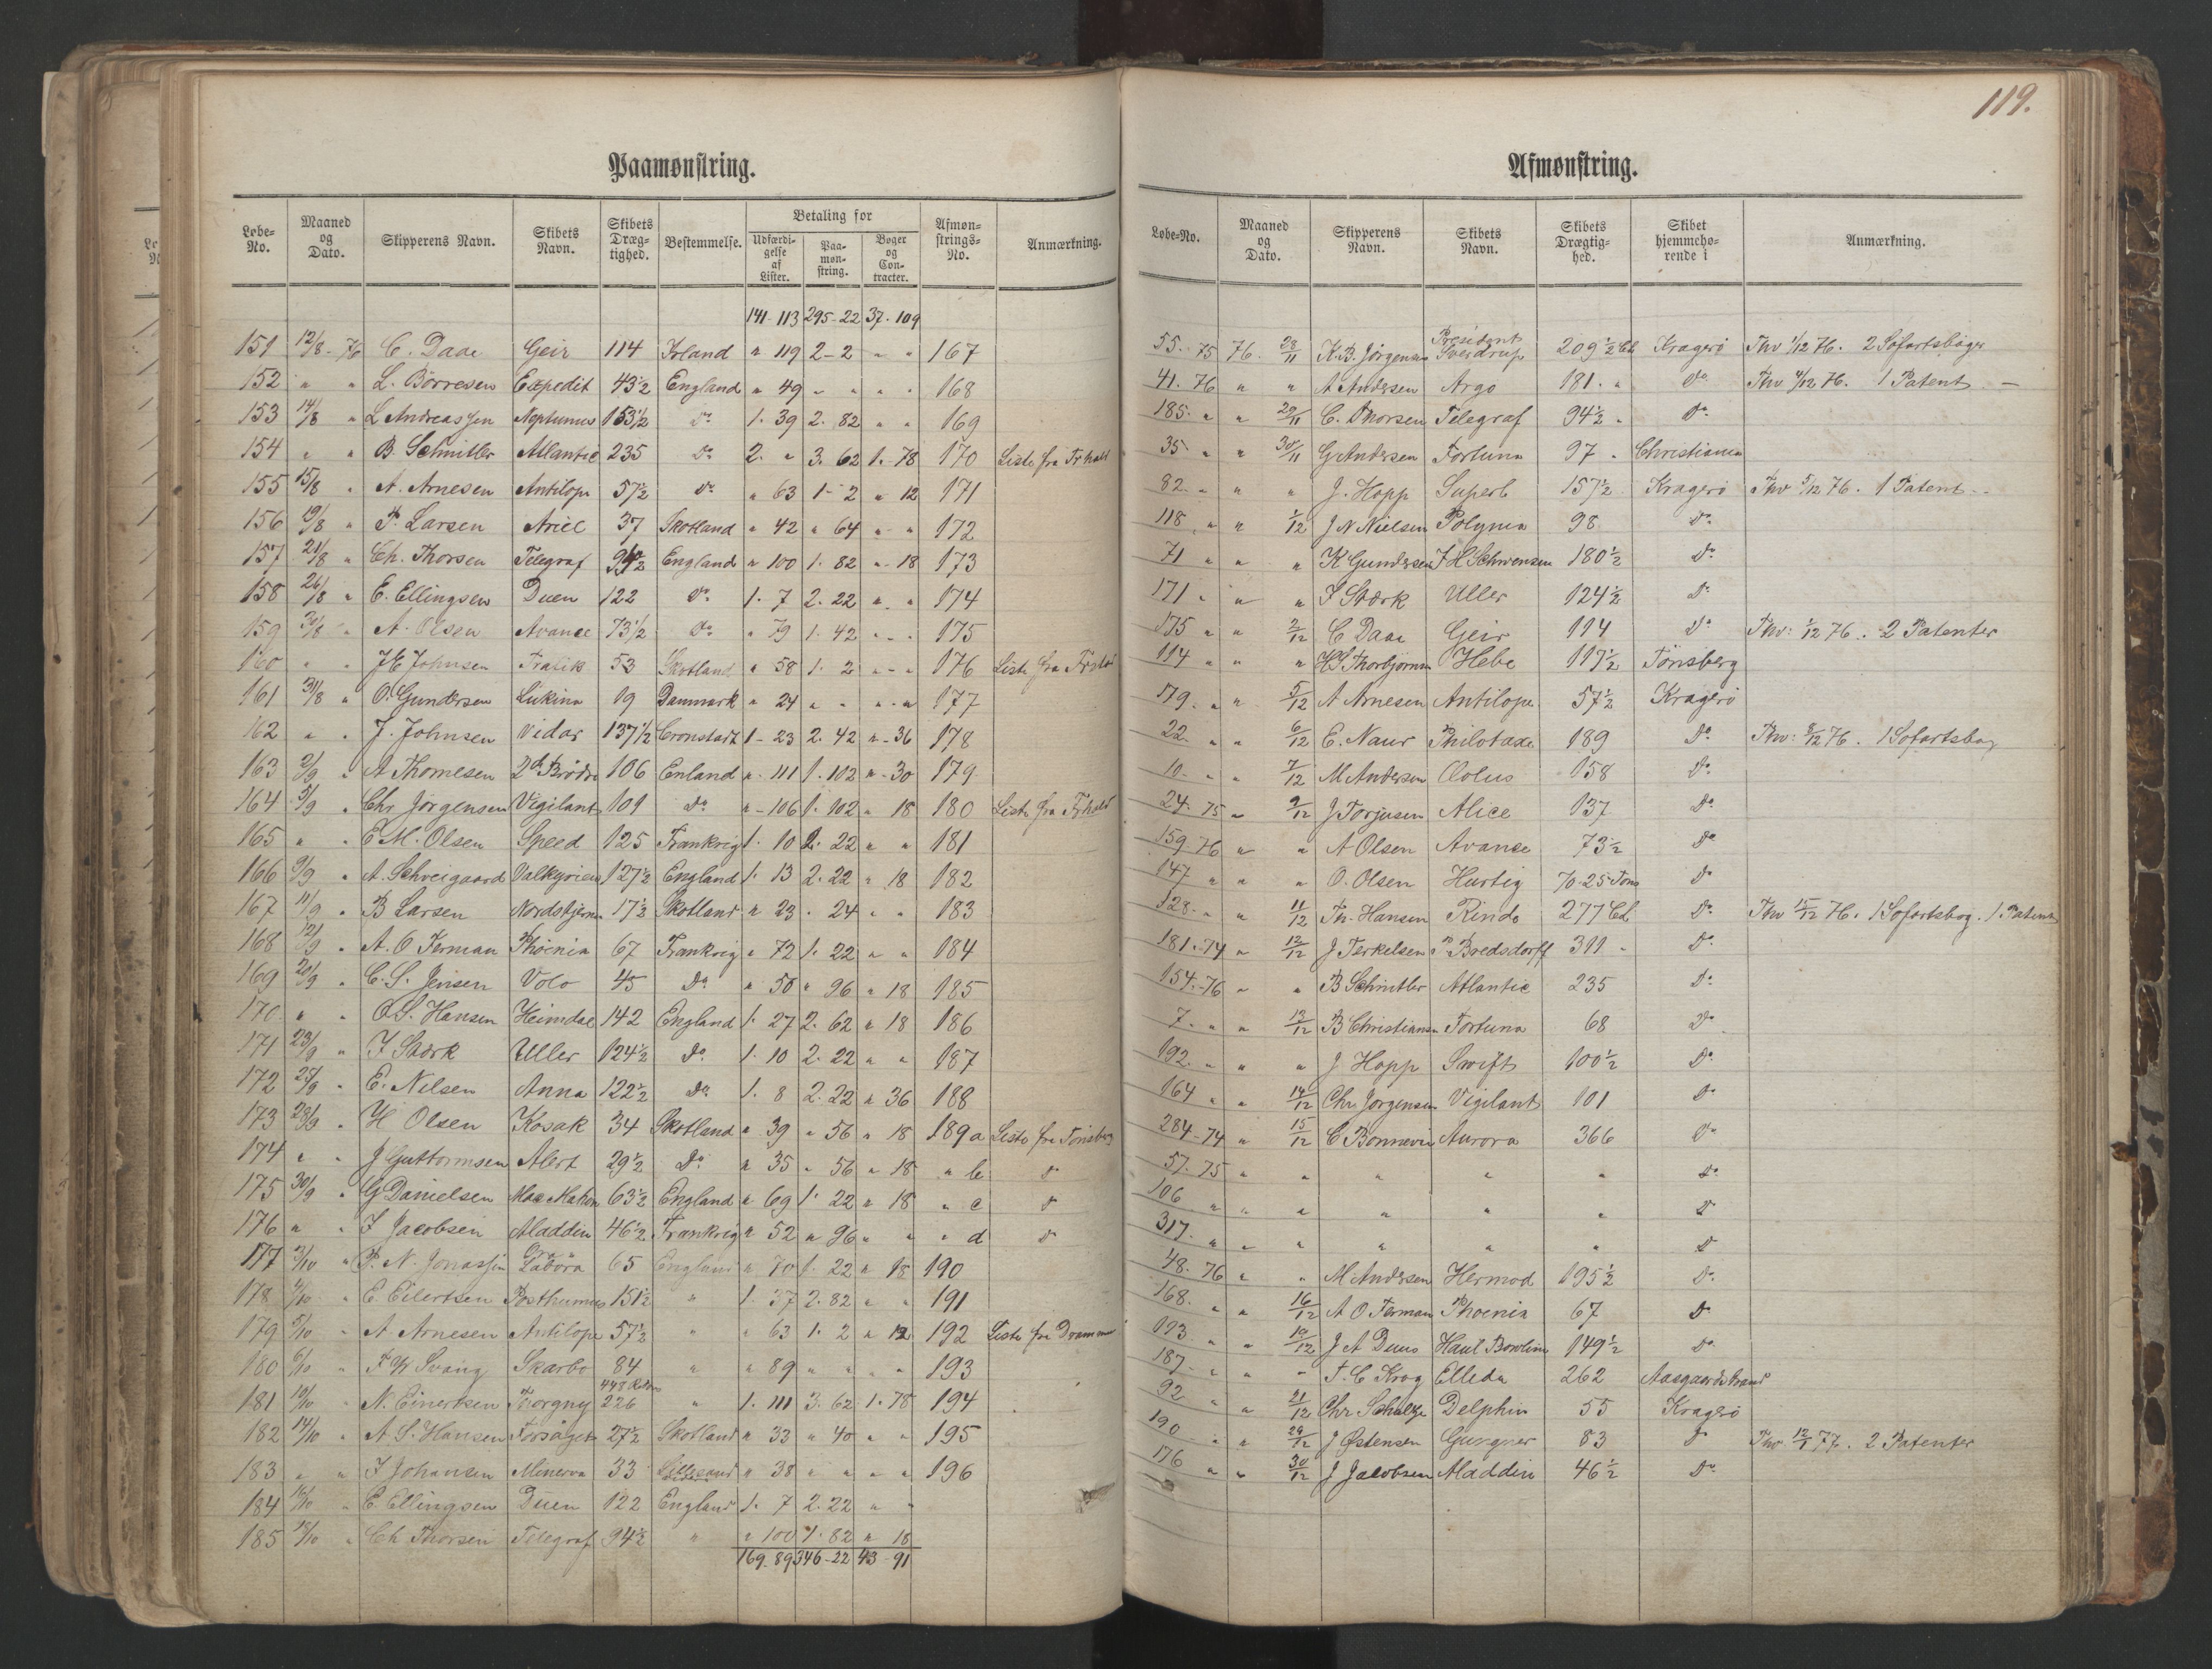 119.
Paamønstring.
Løbe-No. Maaned og Dato. Skipperens Navn. Skibets Navn. Skibets Drægtighed. Bestemmelse. Betaling for Udfærdigelse af Lister. Paamønstring. Bøger og Contracter. Afmønstrings-No. Anmærkning.
141-113 295-22 37-109
151 12/8-76 C. Daae Geir 114 Irland " 119 2-2 " " 167
152 " " L. Børresen Expedit 43½ England " 49 " " " " 168
153 14/8 " L Andreassen Neptunus 153½ Do 1. 39 2. 82 " " 169
154 " " B. Schnitler Atlantic 235 Do 2. " 3. 62 1-78 170 Liste fra Frhald
155 15/8 " A. Arnesen Antilope 57½ Do " 63 1-2 " 12 171
156 19/8 " P. Larsen Ariel 37 Skotland " 42 " 64 " " 172
157 21/8 " Ch. Thorsen Telegraf 94½ England " 100 1. 82 " 18 173
158 26/8 " E. Ellingsen Duen 122 Do 1. 7 2. 22 " " 174
159 30/8 " A. Olsen Avance 73½ Do " 79 1. 42 " " 175
160 " " J E Johnsen Fralik 53 Skotland " 58 1. 2 " " 176 Liste fra
161 31/8 " O. Gundersen Lukina 19 Danmark " 24 " " " " 177
162 " " J. Johnsen Vidar 137½ Cronstadt 1-23 2. 42 "-36 178
163 2/9 " A Thomesen 2de Brødre 106 Enland "-111 1. 102 "-30 179
164 5/9 " Chr Jörgensen Vigilant 101 Do "-106 1. 102 " 18 180 Liste fra Frhald
165 " " E M. Olsen Speed 125 Frankrig 1. 10 2. 22 " " 181
166 9/9 " A. Schweigaard Valkyrien 127½ England 1. 13 2. 22 " 18 182
167 11/9 " B Larsen Nordstjern 17½ Skotland " 23 " 24 " " 183
168 12/9 " A. O Ferman Phoenix 67 Frankrig " 72 1. 22 " " 184
169 20/9 " C. S. Jensen Volo 45 Do " 50 " 96 " 18 185
170 " " O. S. Hansen Heimdal 142 England 1. 27 2. 62 " 18 186
171 23/9 " J Stærk Uller 124½ Do 1. 10 2. 22 " " 187
172 25/9 " E. Nilsen Anna 122½ Do 1. 8 2. 22 " 36 188
173 " H Olsen Kosak 34 Skotland " 39 " 56 " 18 189 a Liste fra Tönsberg
174 " " J Guttormsen Alert 29½ Do " 35 " 56 " 18 " b Do
175 30/9 " G Danielsen Mac Mahon 63½ England " 69 1. 22 " 18 " c Do
176 " " J Jacobsen Aladdin 46½ Frankrig " 52 " 96 " " " d Do
177 3/10 " P. N. Jonassen Ora & Labora 65 England " 70 1. 22 " 18 190
178 4/10 " E. Eilertsen Posthumus 151½ " 1. 37 2. 82 " " 191
179 5/10 " A Arnesen Antilope 57½ " " 63 1. 2 " 12 192 Liste fra Drammen
180 6/10 " Svang Skarbo 84 " " 89 " " " " 193
181 10/10 " N. Einertsen Thorgny 226 " 1. 111 3. 62 1. 78 194
182 14/10 " A. S. Hansen Forsøget 27½ Skotland " 33 " 40 " " 195
183 " " J Johansen Minerva 33 Lillesand " 38 " " " " 196
184 16/10 " E Ellingsen Duen 122 England 1. 7 2. 22 " "
185 " Ch Thorsen Telegraf 94½ " " 100 1. 82 " 18
169-89 346-22 43-91
Afmønstring.
Løbe-No. Maaned og Dato. Skipperens Navn. Skibets Navn. Skibets Drægtighed. Skibet hjemmehørende i Anmærkning.
55.-75 76. 28/11 K. B. Jörgensen Præsident Sverdrup 209½ Cl Kragerö Thv 1/12 76. 2 Søfartsböger
41. 76 " " A Andersen Argo 181. " Do Thv 4/12 76. 1 Patent. —
185. " " 29/11 C. Thorsen Telegraf 94½ " Do
35. " " 30/11 G Andersen Fortuna 97 " Christiania
82. " " " J. Hopp Superb 157½ Kragerö Thv 5/12 76. 1 Patent
118 " " 1/12 J N Nielsen Polyma 98 Do
71 " " " K Gundersen J H Schwensen 180½ Do
171 " " " J Stærk Uller 124½ Do
175 " " 2/12 C Daae Geir 114 Do Thv: 1/12 76. 2 Patenter
114 " " " H S Thorbjörnsen Hebe 117½ Tönsberg
179. " " 5/12 A Arnesen Antilope 57½ Kragerö
22. " " 6/12 E. Naur Philotaxe 189 Do Thv: 8/12 76. 1 Søfartsbog
10. " " 7/12 M Andersen Æolus 158 Do
24. 75 " 9/12 J Torjusen Alice 137 Do
159 76 " " A Olsen Avance 73½ Do
147 " " " O. Olsen Hurtig 70.25 Tons Do
128. " " 11/12 Th. Hansen Rindo 277 Cl Do Thv 15/12 76. 1 Søfartsbog. 1 Patent
181.-74 " 12/12 J Terkelsen P Bredsdorff 311 " Do
154.-76 " " B Schnitler Atlantic 235 Do
7. " " 13/12 B Christiansen Fortuna 68 Do
192. " " " J. Hopp Swift 100½ Do
164 " " 14/12 Chr. Jörgensen Vigilant 101 Do
284-74 " 15/12 C Bonnevie Aurora 366 Do
57. 75 " " " " " Do
106 " " " " " " Do
317. " " " " " " Do
48. 76 " " M Andersen Hermod 195½ Do
168. " " 16/12 A O Ferman Phoenix 67 Do
193 " " 19/12 J A Duus Haul Bowline 149½ Do
187 " " " T. C Krog Elleda 262 Aasgaardstrand
92 " " 21/12 Chr Schulze Delphin 55 Kragerö
190 " " 29/12 J Østensen Gungner 83 Do Thv 12/1 77. 2 Patenter
176 " " 30/12 J Jacobsen Aladdin 46½ Do